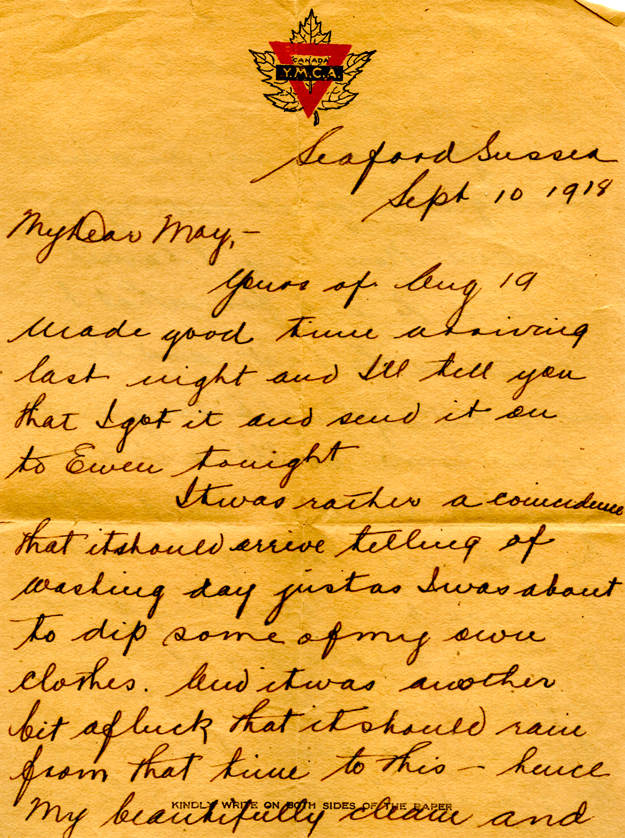 CANADA
Y.M.C.A.
Seaford Sussex
Sept 10 1918
My Dear May,-
Yours of Aug 19
made good time arriving
last night and I'll tell you
that I got it and send it on
to Ewen tonight
It was rather a coincidence
that it should arrive telling of
washing day just as I was about
to dip some of my own
clothes. And it was another
bit of luck that it should rain
from that time to this - hence
my beautifully clean and
KINDLY WRITE ON BOTH SIDES OF THE PAPER